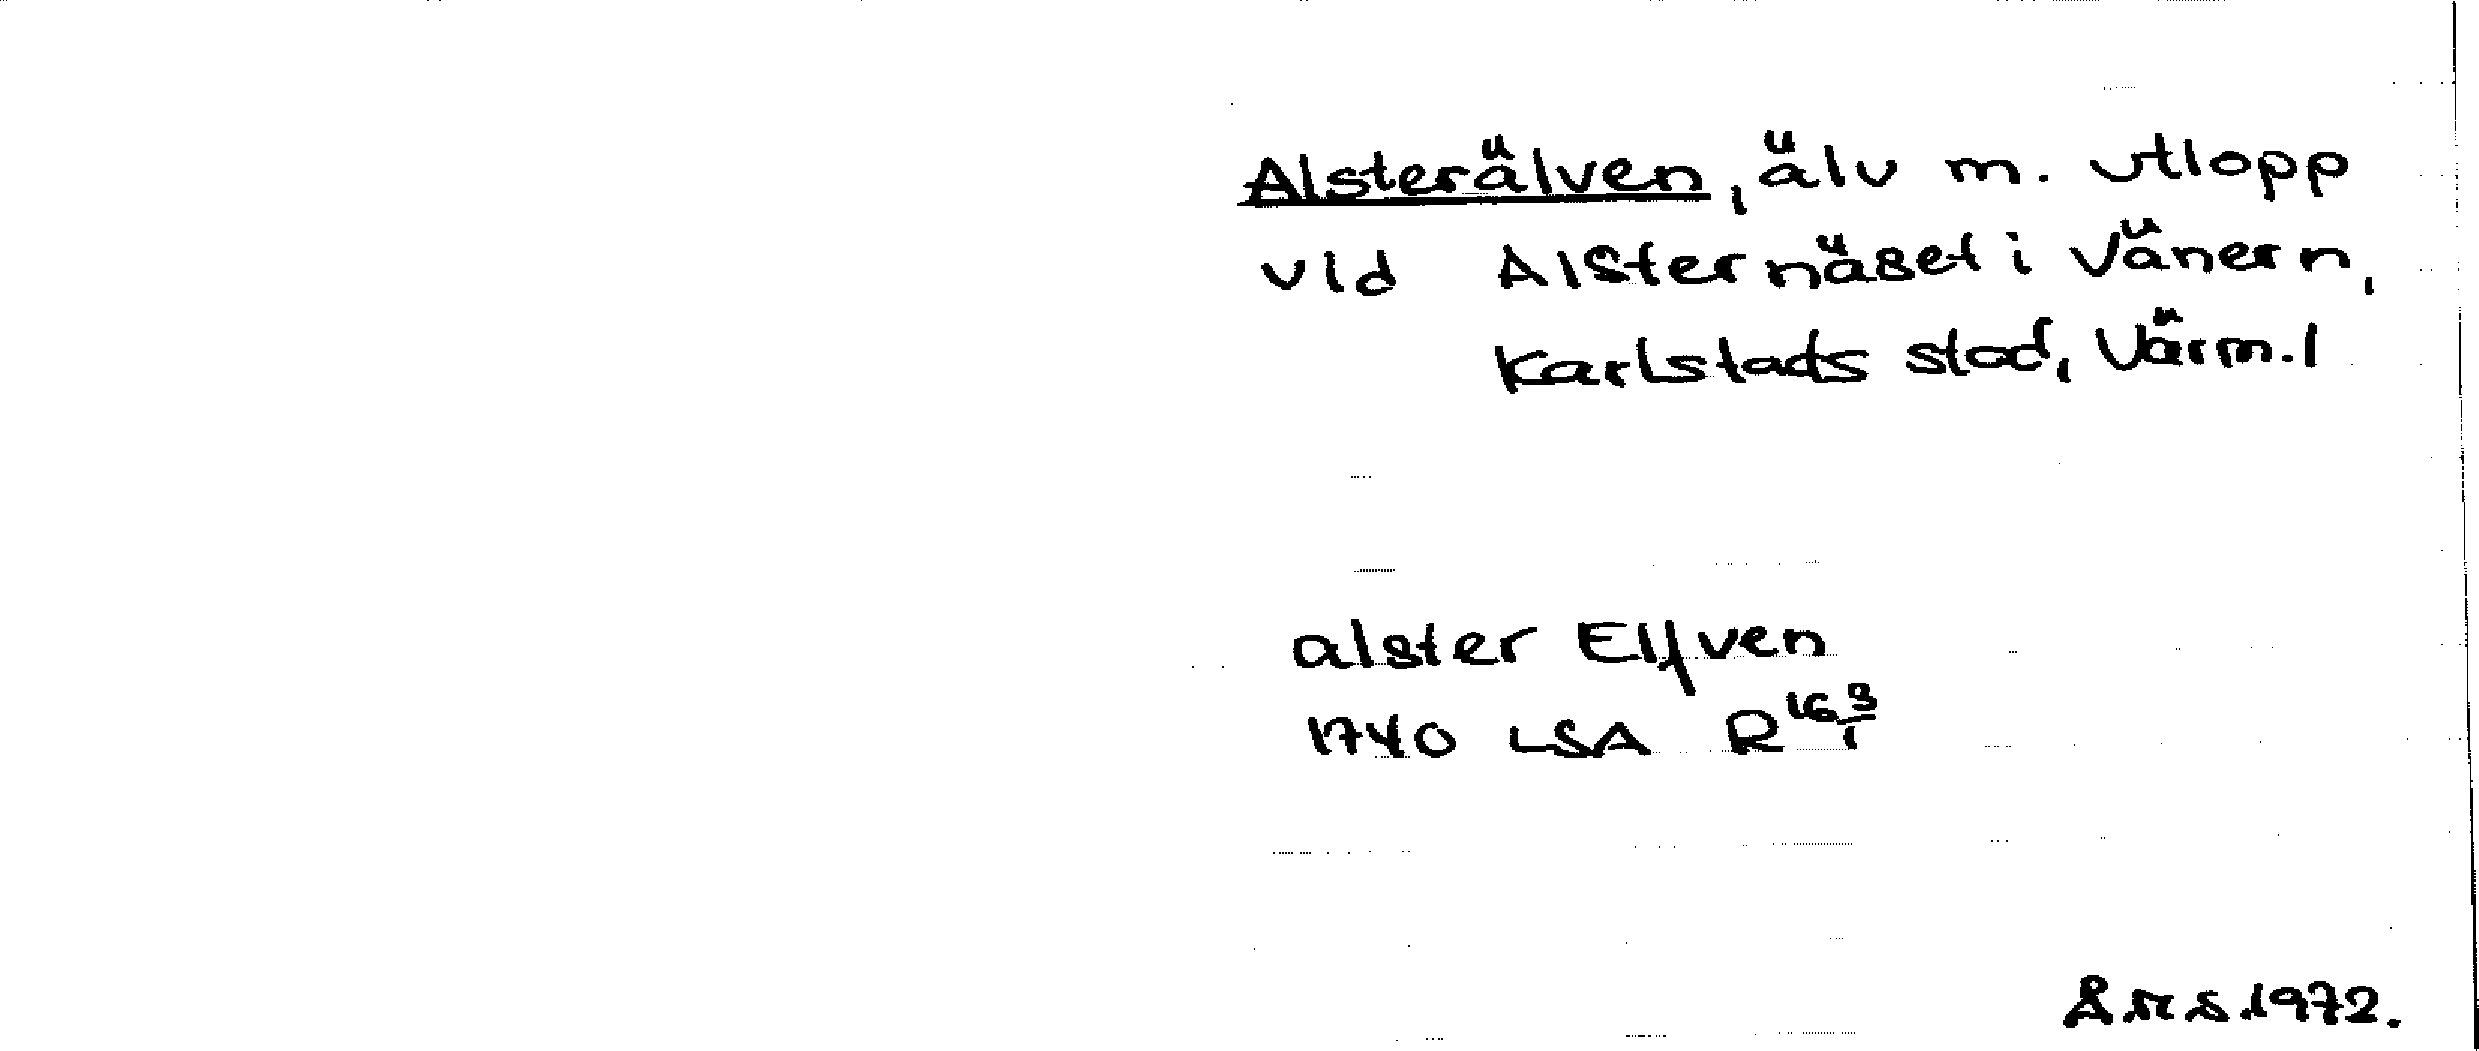 Alsterälven, älv m. utlopp
vid Alsternäset i Vänern,
Karlstads stad, Värm. l
alster Elfven
1740 LSA R 16 3/1
1972.